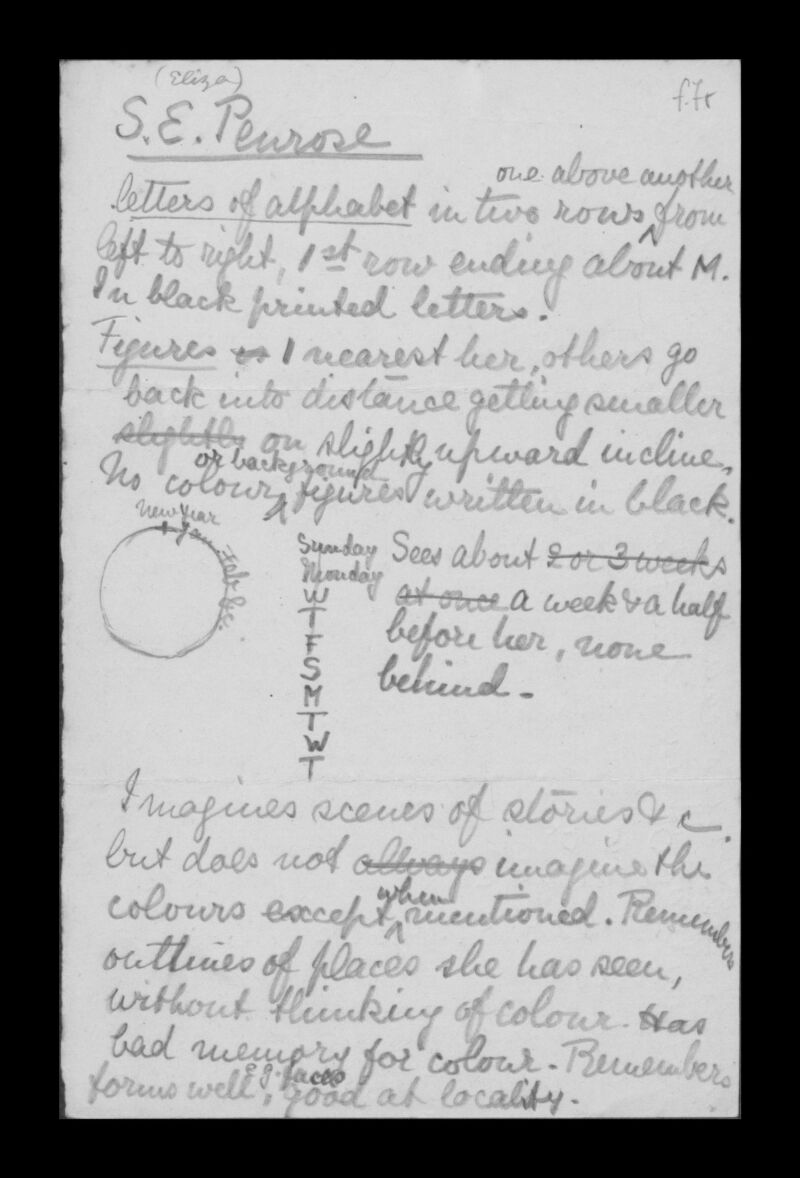 (Eliza)
f.7r
S. E. Penrose
one above another
letters of alphabet in two rows ^ from
left to right, 1st row ending about M.
In black printed letters.
Figures 1 nearest her, others go
back into distance getting smaller
slightly on slightly upward incline.
or background
No colour ^ figures written in black.
New Year
1 Jan Feb &c.
Sunday
Monday
W
T
F
S
M
T
W
T
Sees about 2 or 3 weeks
at once a week & a half
before her, none
behind -
Imagines scenes of stories & c.
but does not always imagine the
when
colours except ^ mentioned. Remembers
outlines of places she has seen,
without thinking of colour. Has
bad memory for colour. Remembers
e.g. faces
forms well, good at locality.